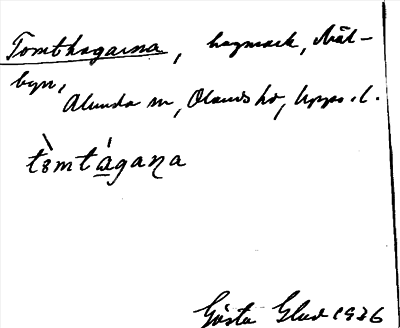 Tomthagarna, hagmark, Väl-
byn,
Alunda sn, Olands hd, Upps. l.
tòmtágana
Gösta Glad 1926